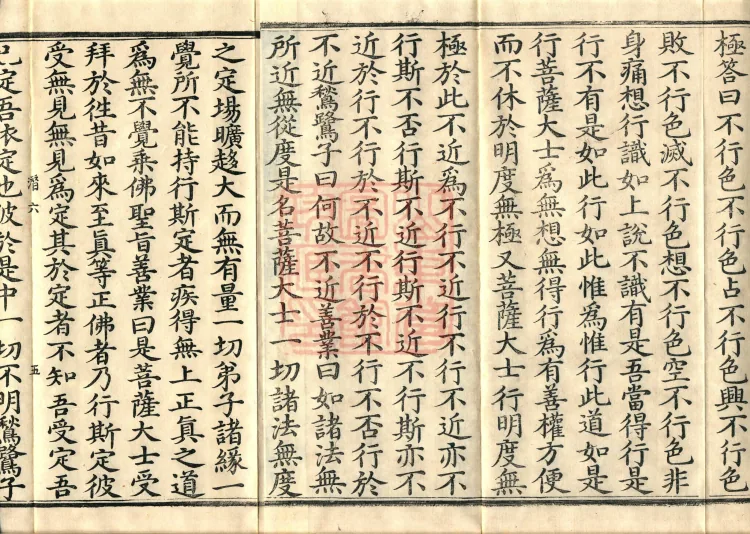 極答曰不行色不行色占不行色興不行色
敗不行色滅不行色想不行色空不行色非
身痛想行識如上說不識有是吾當得行是
行不有是如此行如此惟為惟行此道如是
行菩薩大士為無想無得行為有善權方便
而不休於明度無極又菩薩大士行明度無
極於此不近為不行不近行不行不近亦不
行斯不否行斯不近行斯不近不行斯亦不
近於行不行於不近不行於不行不否行於
不近鶖鷺子曰何故不近善業曰如諸法無
所近無從度是名菩薩大士一切諸法無度
之定場曠趍大而無有量一切弟子諸緣一
覺所不能持行斯定者疾得無上正真之道
為無不覺乘佛聖旨善業曰是菩薩大士受
拜於徃昔如來至真等正佛者乃行斯定彼
受無見無見為定其於定者不知吾受定吾
潛六
五
已定吾依定也彼於是中一切不明鶖鷺子